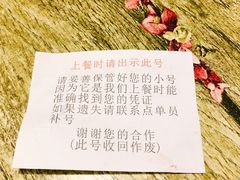 上餐时请出示此号
请妥善保管好您的小号
因为它是我们上餐时能
准确找到您的凭证
如果遗失请联系点单员
补号
谢谢您的合作
(此号收回作废)